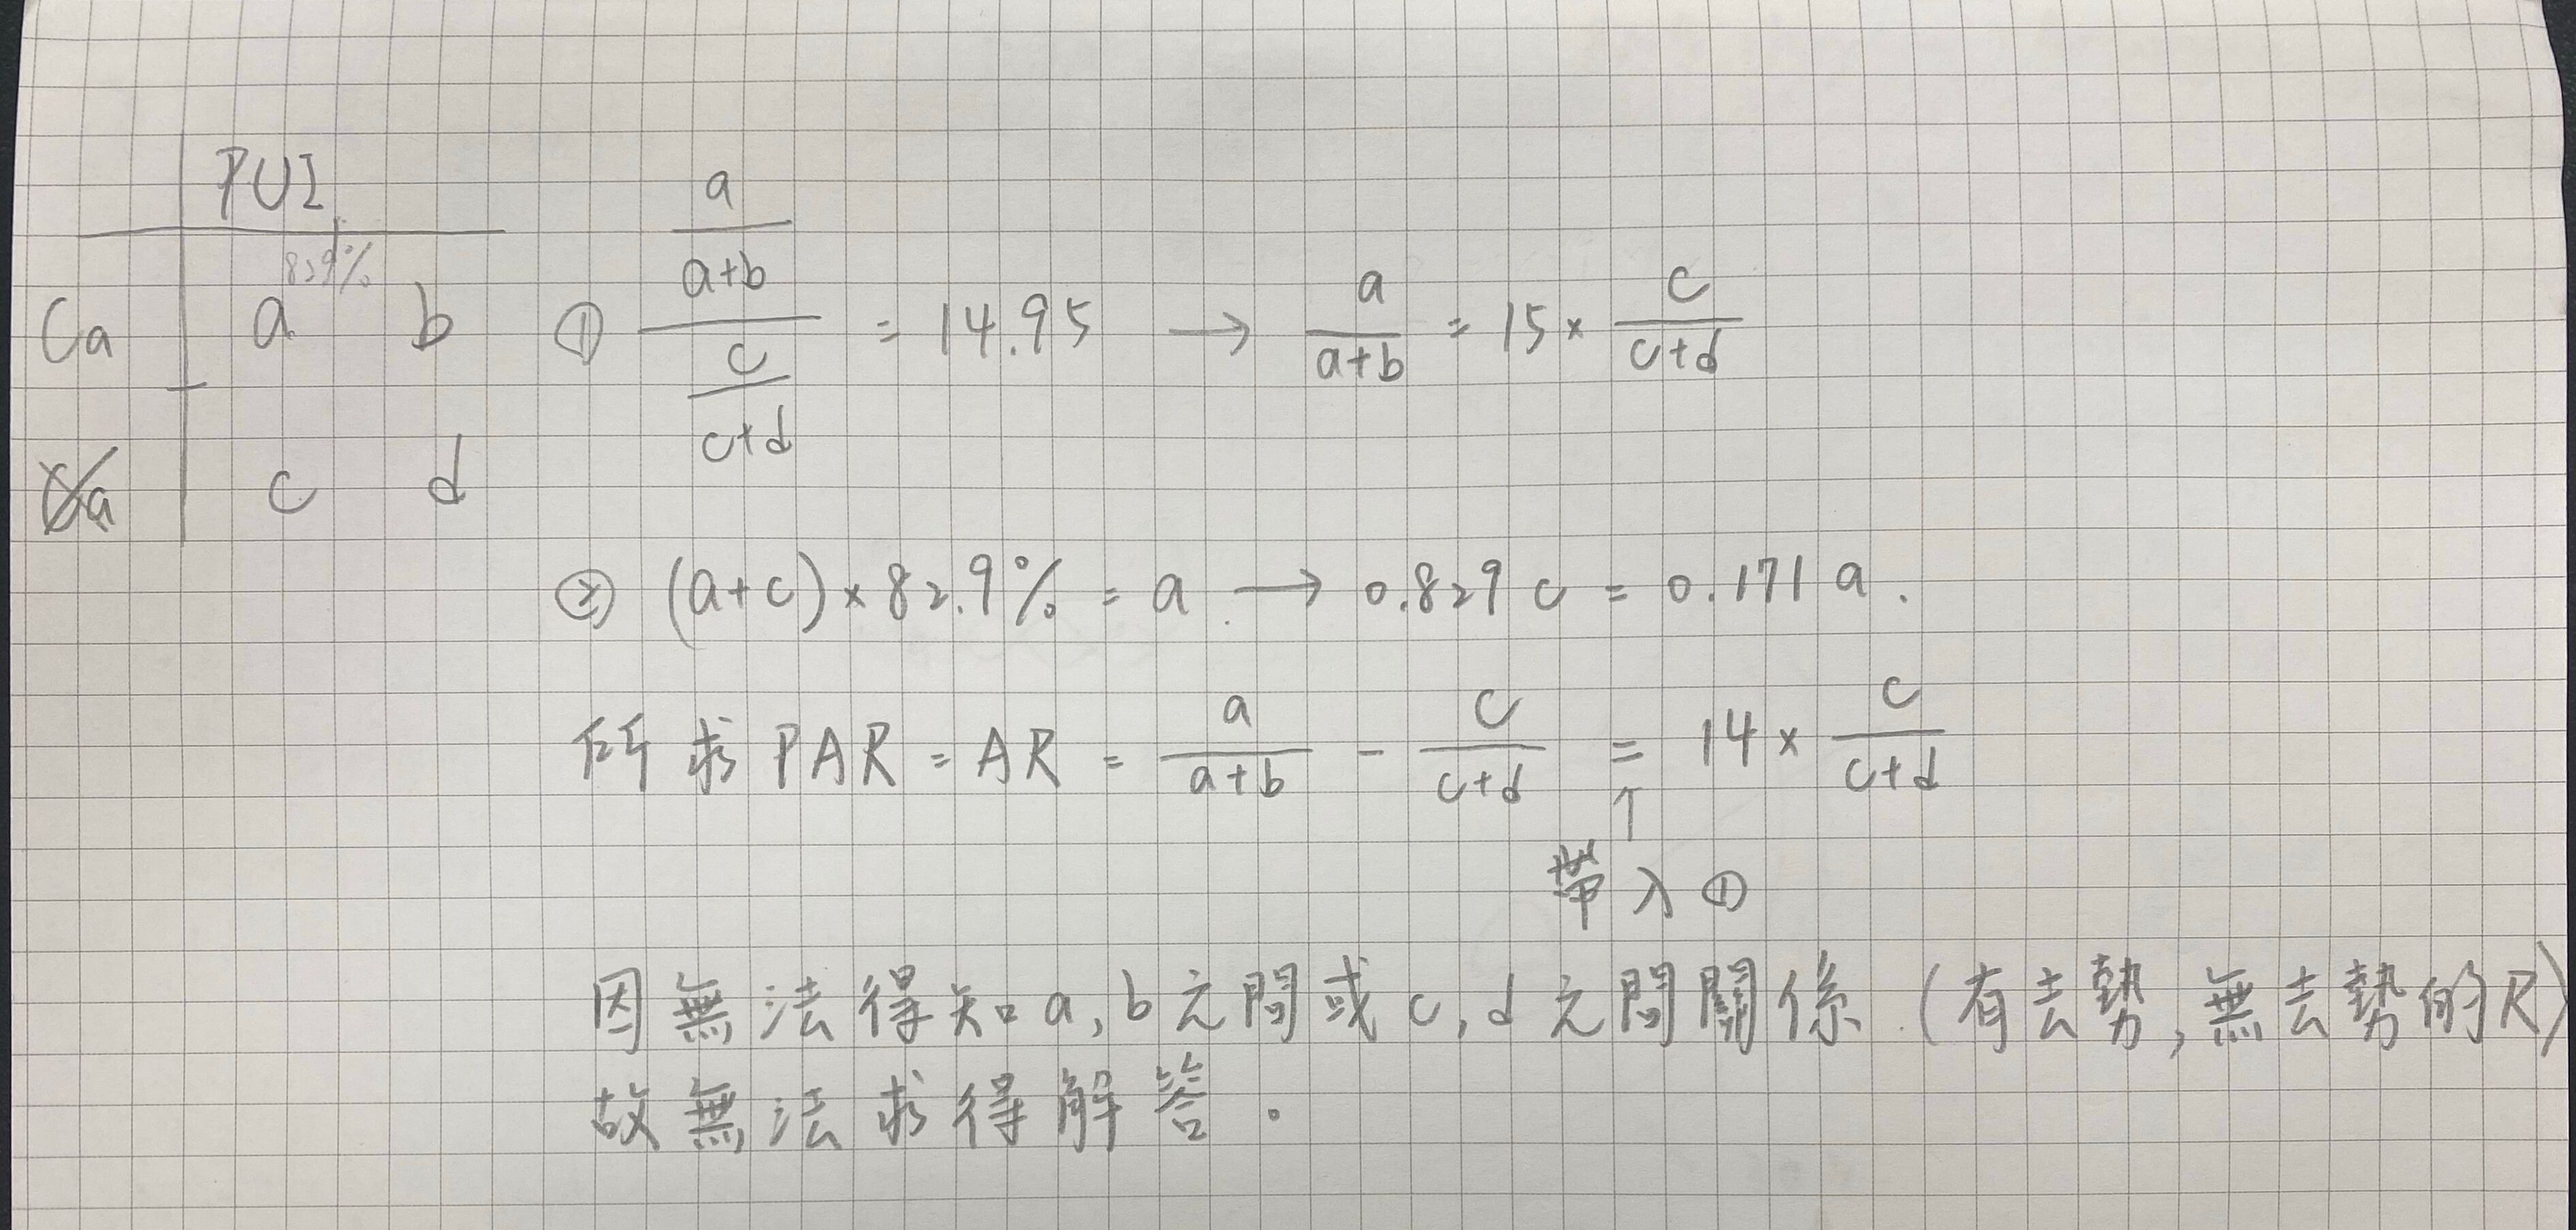 PUI
82.9%
Ca a b
Ca c d
① (a/(a+b)) / (c/(c+d)) = 14.95 → a/(a+b) = 15 × c/(c+d)
② (a+c) × 82.9% = a → 0.829 c = 0.171 a.
所求 PAR = AR = a/(a+b) - c/(c+d) = 14 × c/(c+d)
↑
帶入①
因無法得知 a, b 之間或 c, d 之間關係 (有去勢, 無去勢的R)
故無法求得解答。